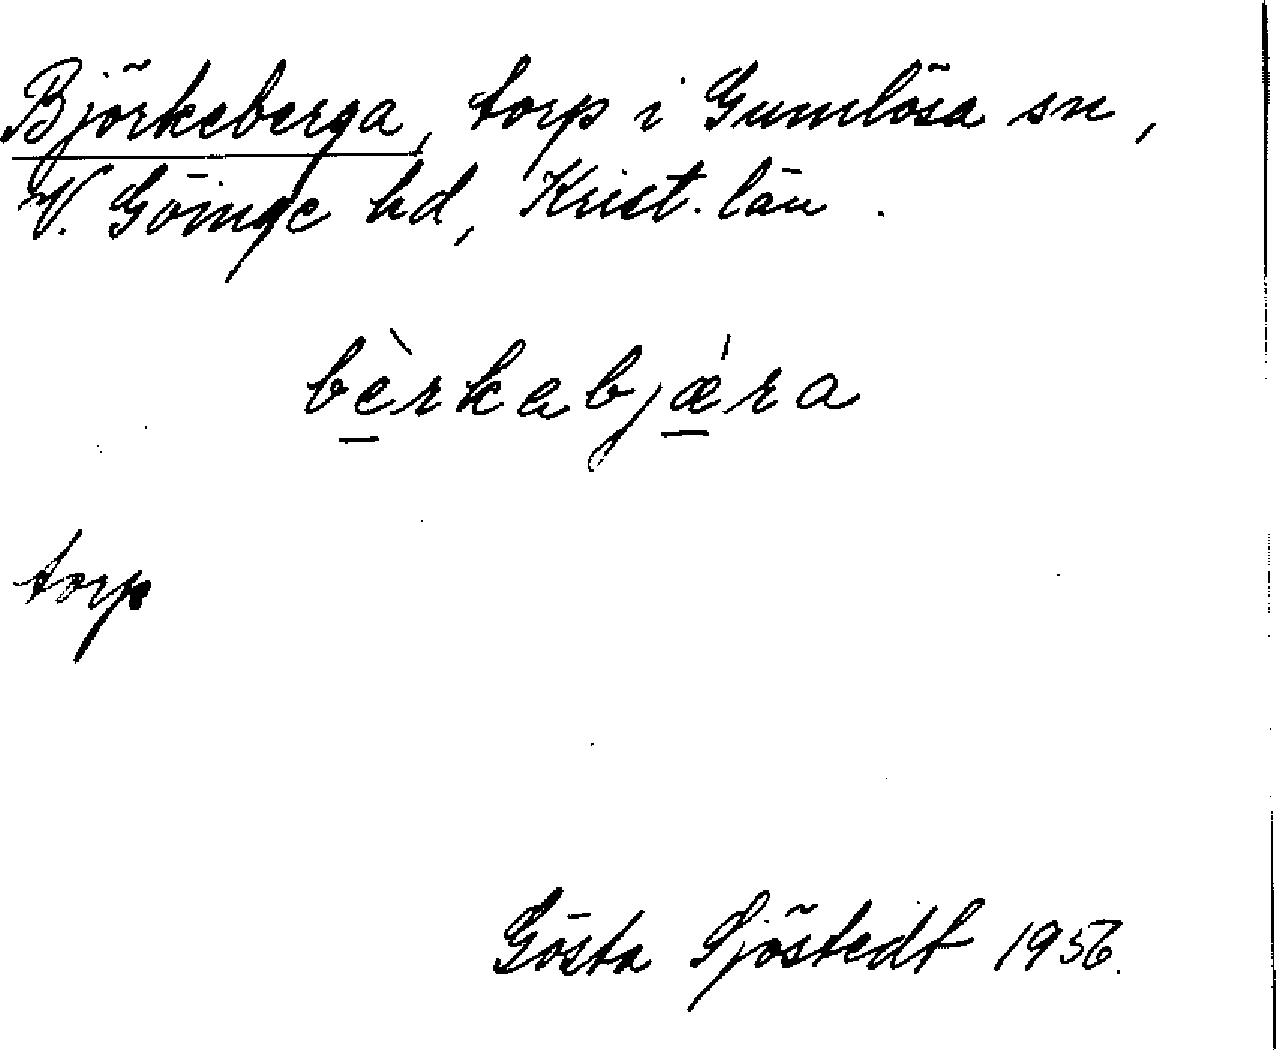 Björkeberga, torp i Gumlösa sn,
V. Göinge hd, Krist. län.
bèrkabjǽra
torp
Gösta Sjöstedt 1956.